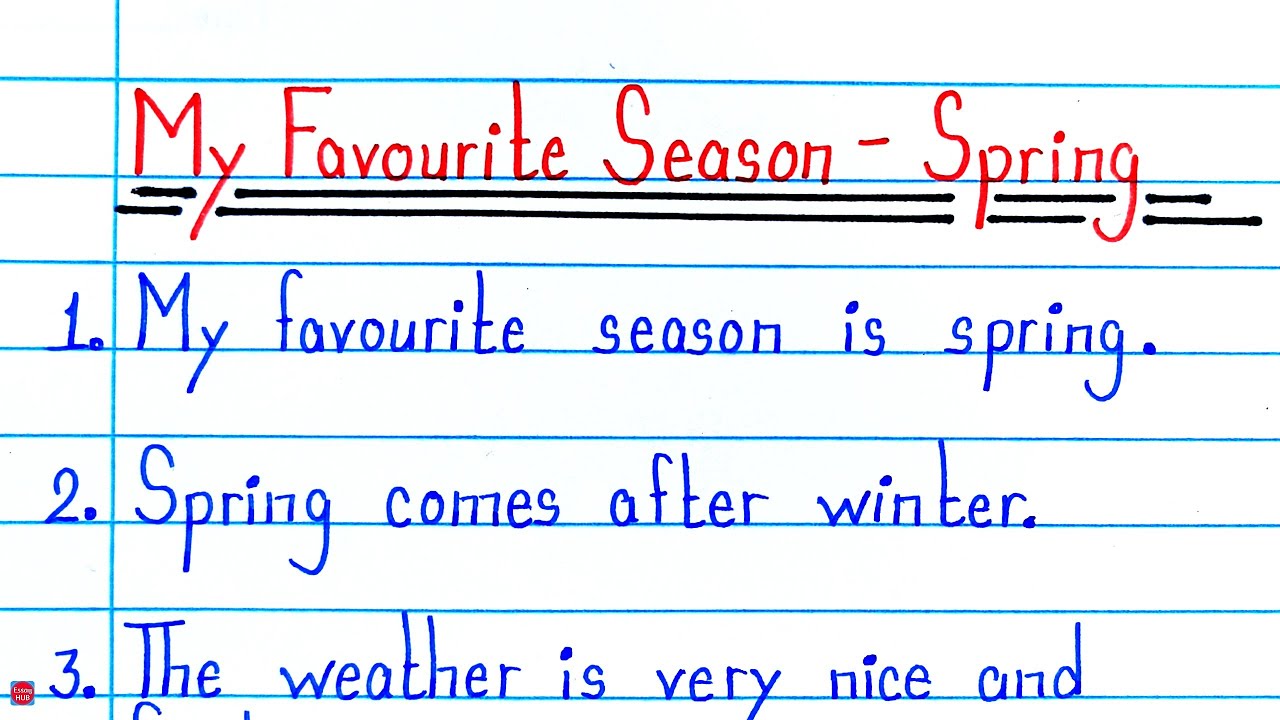 My Favourite Season - Spring
1. My favourite season is spring.
2. Spring comes after winter.
3. The weather is very nice and
Essay
HUB